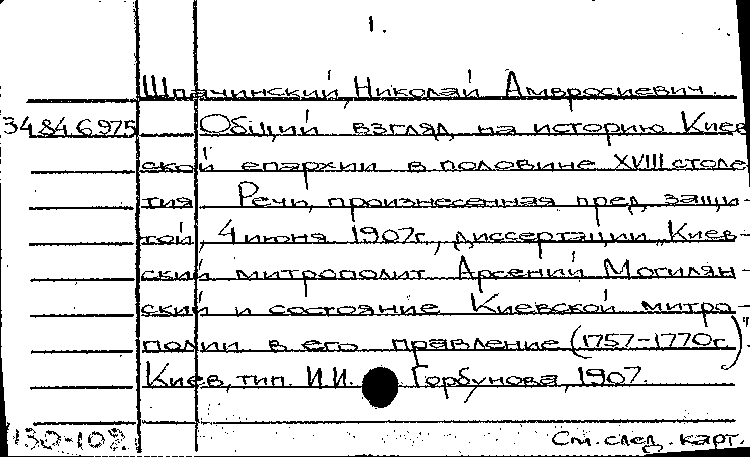 1.
Шпачинский, Николай Амвросиевич.
34846975 Общий взгляд на историю Киев
ской епархии в половине XVIII столе
тия. Речи, произнесенная пред защи-
той, 4 июня 1907г., диссертации "Киев-
ский митрополит Арсений Могилян-
ский и состояние Киевской митро-
полии в его правление (1757-1770г.)".
Киев, тип. И.И. Горбунова, 1907.
130-108.
См. след. карт.